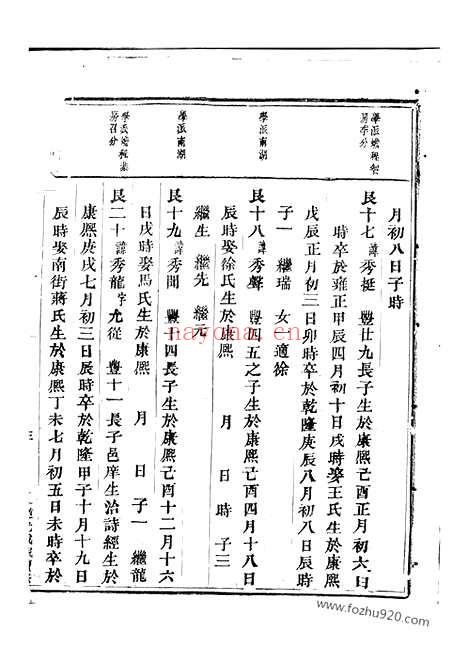 月初八日子時
學派嶝程智房李分
良十七諱秀挺 豐廿九長子生於康熙己酉正月初六日
時卒於雍正甲辰四月初十日戌時娶王氏生於康熙
戊辰正月初三日卯時卒於乾隆庚辰八月初八日辰時
子一 繼瑞 女適徐
學派南湖
良十八諱秀聲 豐四五之子生於康熙己酉四月十八日
辰時娶徐氏生於康熙 月 日 時 子三
繼生 繼先 繼元
學派南湖
良十九諱秀聞 豐十四長子生於康熙己酉十二月十六
日戌時娶馬氏生於康熙 月 日 子一 繼龍
房召分
良二十諱秀龍字允從 豐十一長子邑庠生治詩經生於
康熙庚戌七月初三日辰時卒於乾隆甲子十月十九日
辰時娶南街蔣氏生於康熙丁未七月初五日未時卒於
nayona.cn
www.fozhu920.com